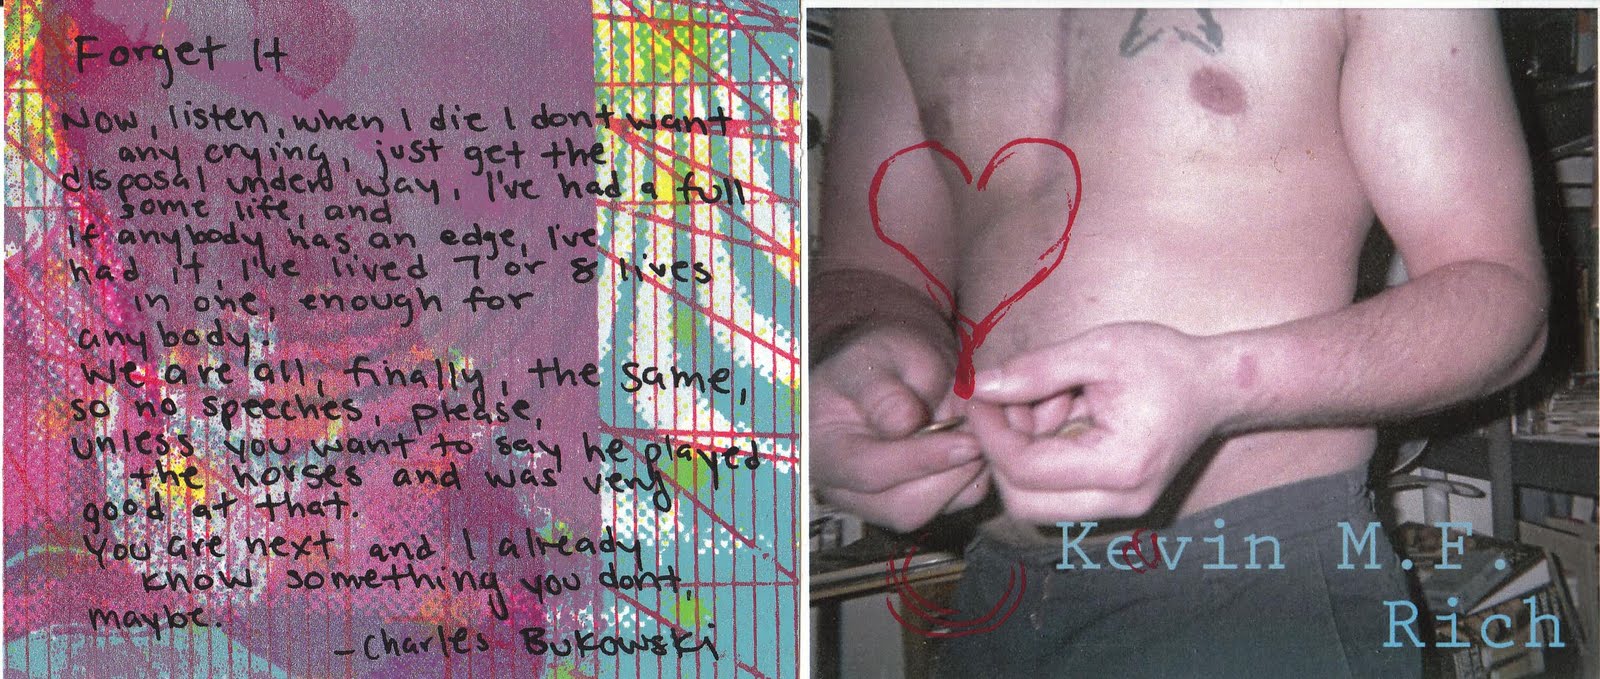 Forget It
Now, listen, when I die I dont want
any crying, just get the
disposal under way, I've had a full
some life, and
If anybody has an edge, I've
had it, I've lived 7 or 8 lives
in one, enough for
anybody.
We are all, finally, the same,
so no speeches, please,
unless you want to say he played
the horses and was very
good at that.
You are next and I already
know something you dont,
maybe.
- Charles Bukowski
Kevin M.F.
Rich